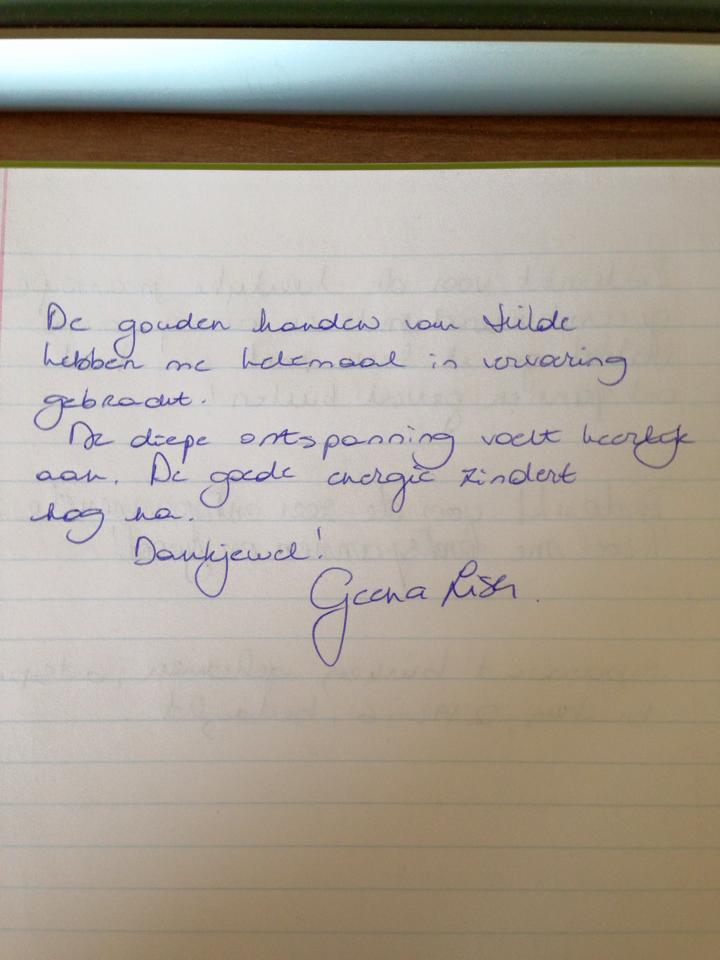 De gouden handen van Hilde
hebben me helemaal in vervoering
gebracht.
De diepe ontspanning voelt heerlijk
aan. De goede energie zindert
nog na.
Dankjewel!
Geena